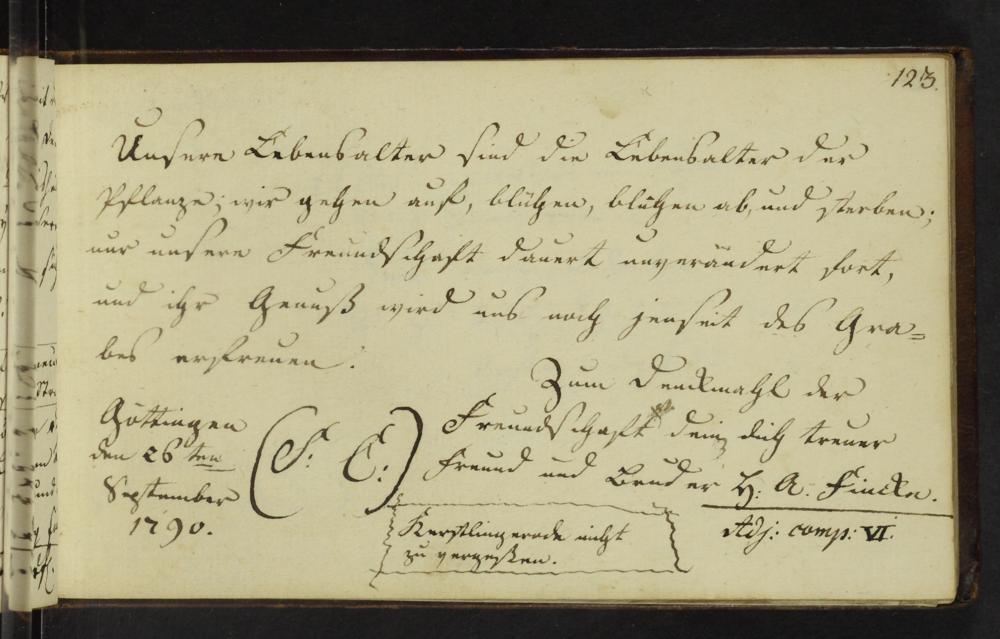 123.
Unsere Lebensalter sind die Lebensalter der
Pflanze; wir gehen auf, blühen, blühen ab, und sterben;
nur unsere Freundschaft dauert unverändert fort,
und ihr Genuß wird uns noch jenseit des Gra=
bes erfreuen.
Zum Denckmahl der
Freundschaft dein dich treuer
Freund und Bruder H: A. Fincke.
Adj: comp: VI.
Göttingen
den 26ten
September
1790.
(S. E.)
Kerstlingerode nicht
zu vergeßen.